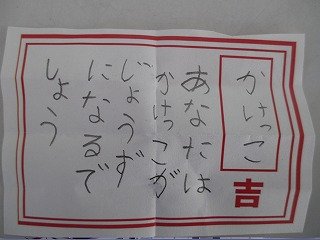 かけっこ
吉
あなたは
かけっこが
じょうず
になるで
しょう